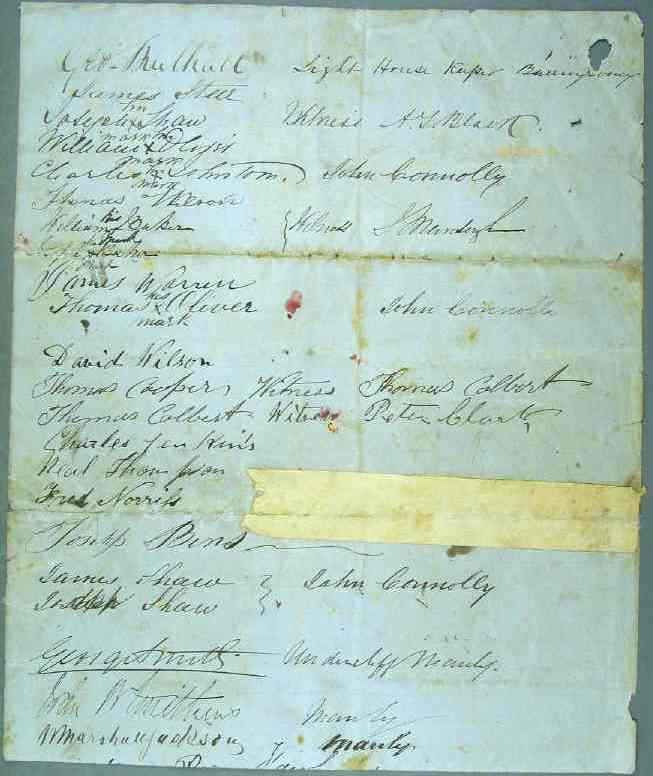 Geo. Mulhall Light House Keeper
James Steel
Joseph Shaw Witness A. S. Black.
mark his
William x
mark
Charles x Johnston. John Connolly
mark
Thomas
William his Baker } Witness
mark
James Warren
Thomas his x Clever John Connolly
mark
David Wilson
Thomas Cooper Witness Thomas Colbert
Thomas Colbert Witness Peter Clark
Charles Jenkins
Neal Thompson
Fred Norris
Joseph Bens
James Shaw } John Connolly
Joseph Shaw
George Smith Undercliff Manly.
W Smithers Manly
W Marshall Jackson Manly.